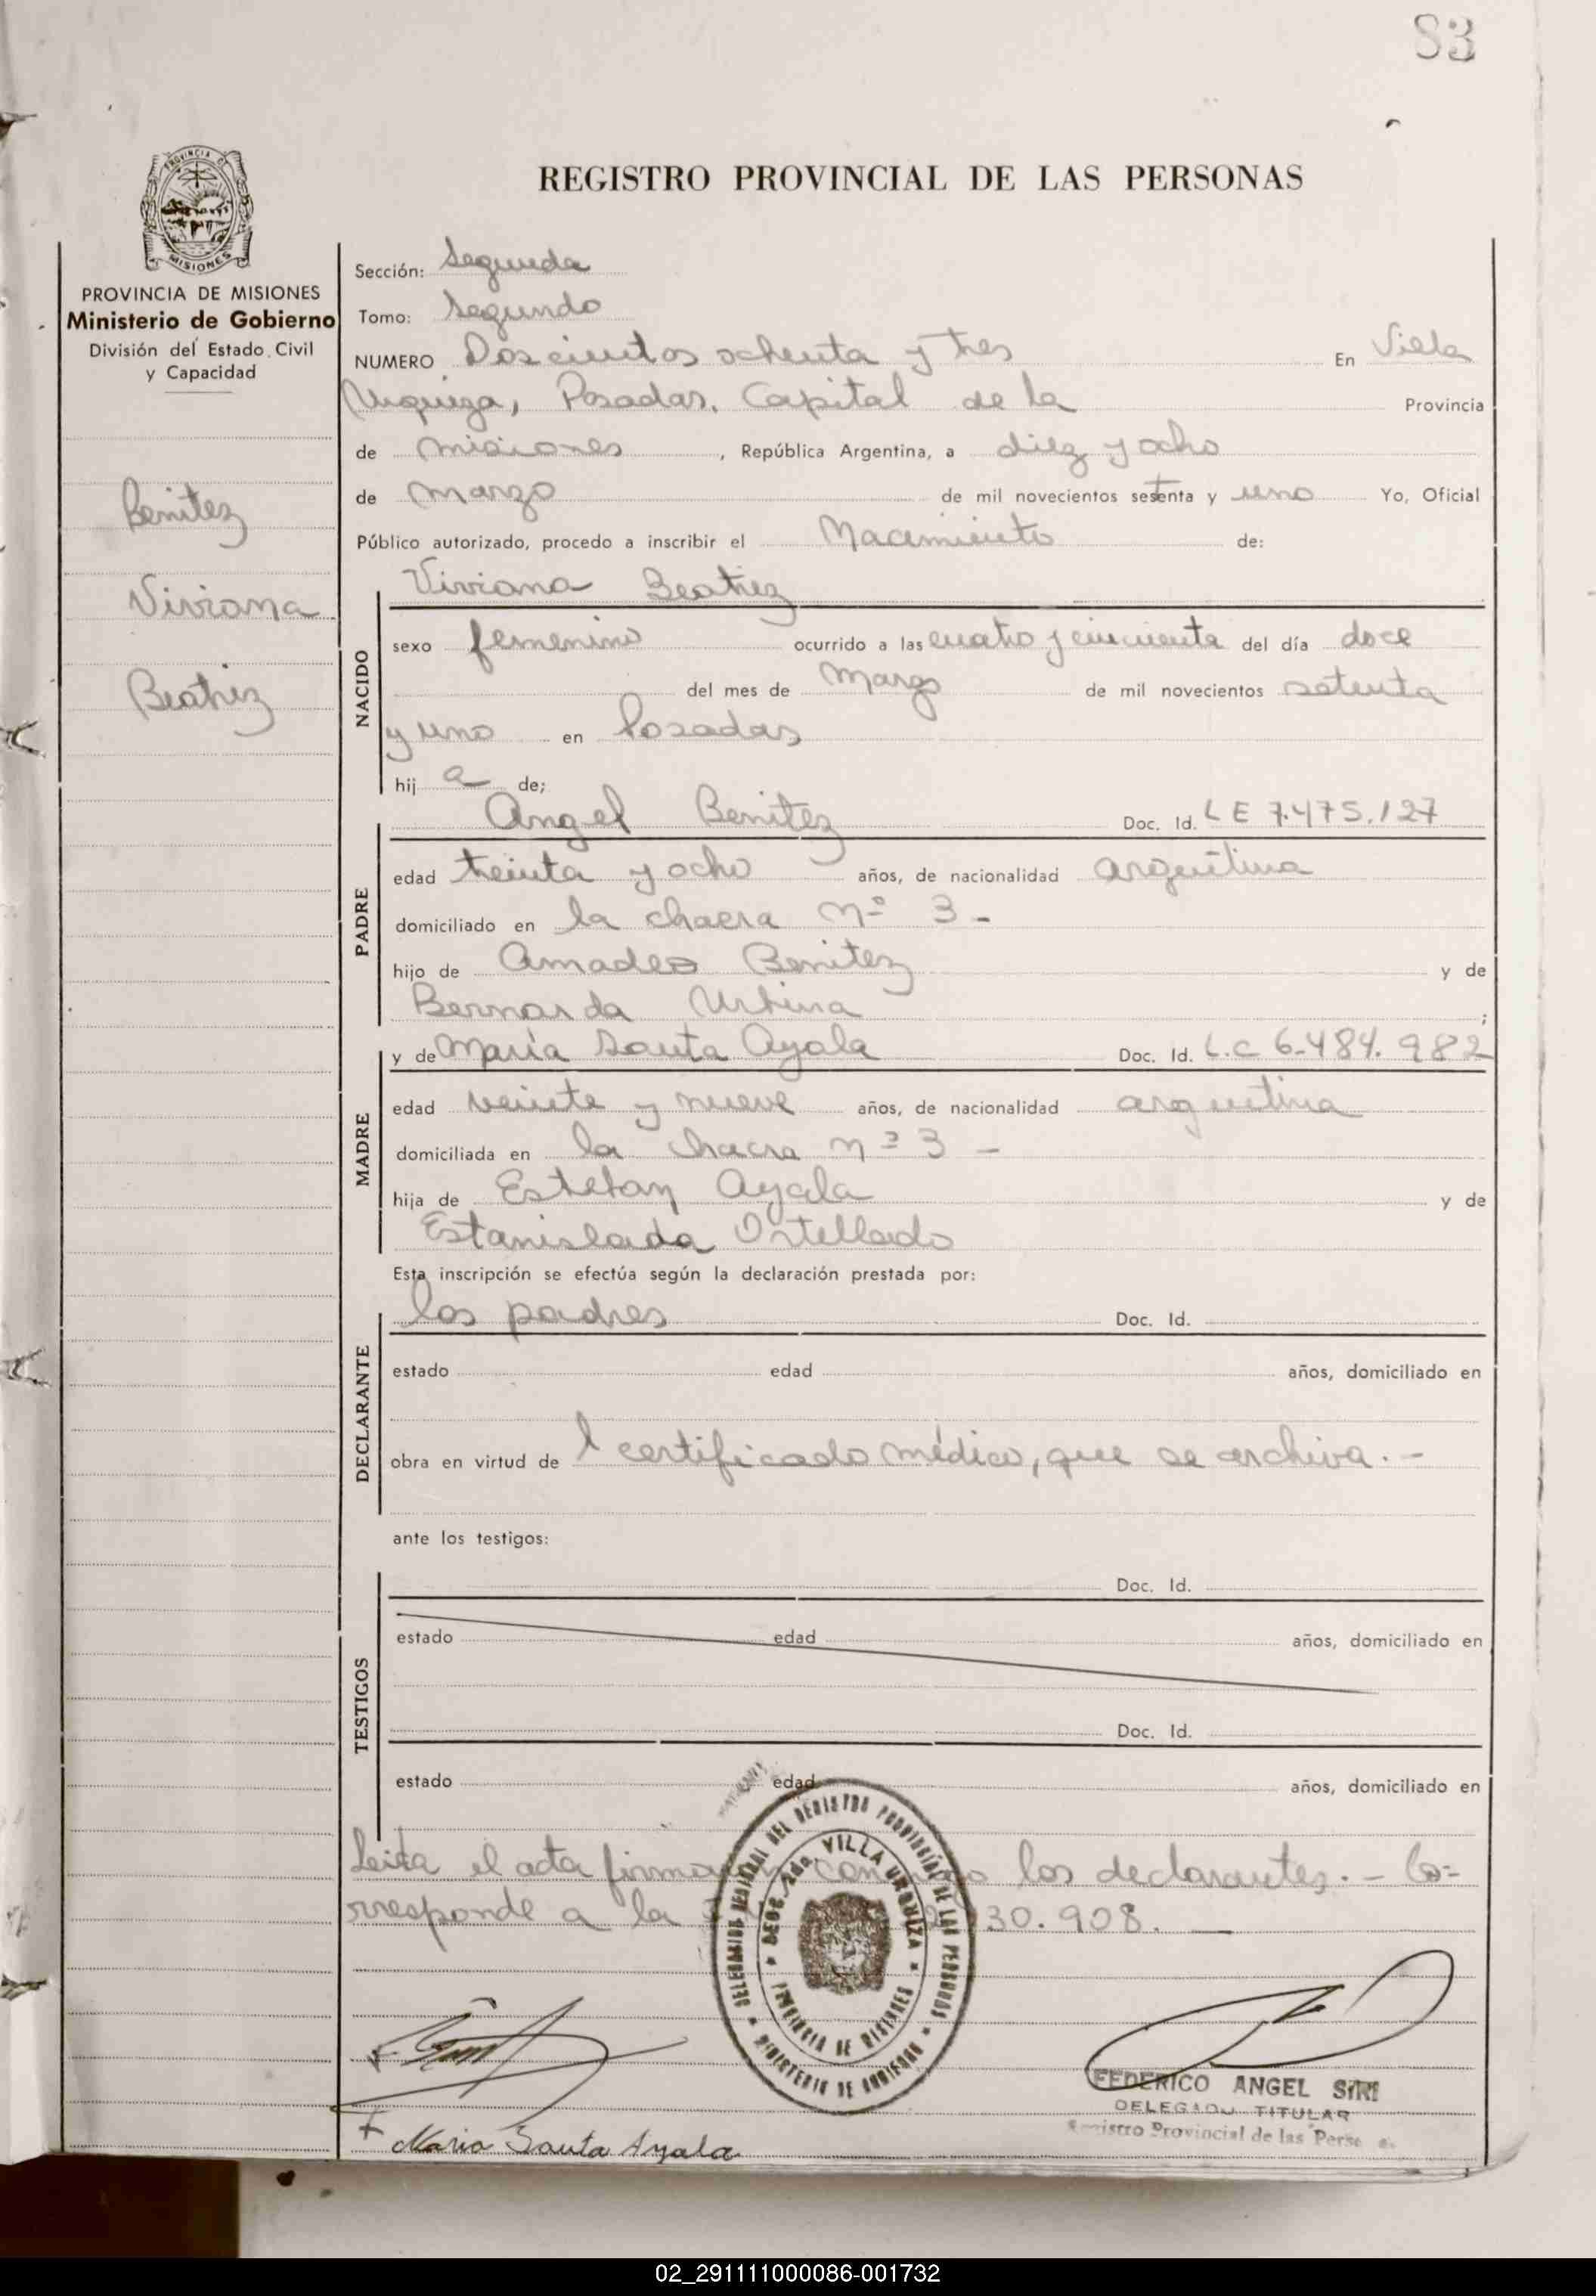 83
PROVINCIA DE
MISIONES
REGISTRO PROVINCIAL DE LAS PERSONAS
PROVINCIA DE MISIONES
Ministerio de Gobierno
División del Estado Civil
y Capacidad
Benitez
Viviana
Beatriz
Sección: Segunda
Tomo: Segundo
NUMERO Doscientos ochenta y tres En Villa
Urquiza, Posadas, Capital de la Provincia
de Misiones, República Argentina, a diez y ocho
de marzo de mil novecientos setenta y uno Yo, Oficial
Público autorizado, procedo a inscribir el Nacimiento de:
Viviana Beatriz
NACIDO
sexo femenino ocurrido a las cuatro y cincuenta del día doce
del mes de Marzo de mil novecientos setenta
y uno en Posadas
hij a de;
Angel Benitez Doc. Id. L E 7.475.127
PADRE
edad treinta y ocho años, de nacionalidad argentina
domiciliado en la chacra nº 3 -
hijo de Amadeo Benitez y de
Bernarda Urbina;
y de María Santa Ayala Doc. Id. L.C 6.484.982
MADRE
edad veinte y nueve años, de nacionalidad argentina
domiciliada en la chacra nº 3 -
hija de Esteban Ayala y de
Estanislada Ortellado
Esta inscripción se efectúa según la declaración prestada por:
los padres Doc. Id.
DECLARANTE
estado edad años, domiciliado en
obra en virtud de l certificado médico, que se archiva. -
ante los testigos:
Doc. Id.
TESTIGOS
estado edad años, domiciliado en
Doc. Id.
estado edad años, domiciliado en
Leída el acta firman conmigo los declarantes. - Co=
rresponde a la 30.908. —
DEL REGISTRO PROVINCIAL DE LAS PERSONAS
MINISTERIO DE GOBIERNO
SECC. 2da. VILLA URQUIZA
PROVINCIA DE MISIONES
FEDERICO ANGEL SIRI
DELEGADO TITULAR
Registro Provincial de las Personas
Maria Santa Ayala
02_291111000086-001732